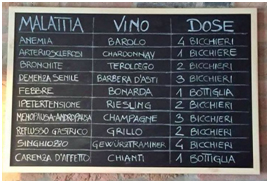 MALATTIA VINO DOSE
ANEMIA BAROLO 4 BICCHIERI
ARTERIOSCLEROSI CHARDONNAY 1 BICCHIERE
BRONCHITE TEROLDEGO 2 BICCHIERI
DEMENZA SENILE BARBERA D'ASTI 3 BICCHIERI
FEBBRE BONARDA 1 BOTTIGLIA
IPERTENSIONE RIESLING 2 BICCHIERI
MENOPAUSA-ANDROPAUSA CHAMPAGNE 3 BICCHIERI
REFLUSSO GASTRICO GRILLO 2 BICCHIERI
SINGHIOZZO GEWÜRZTRAMINER 4 BICCHIERI
CARENZA D'AFFETTO CHIANTI 1 BOTTIGLIA